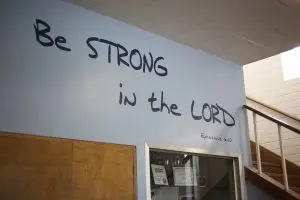 Be STRONG
in the LORD
Ephesians 6:10